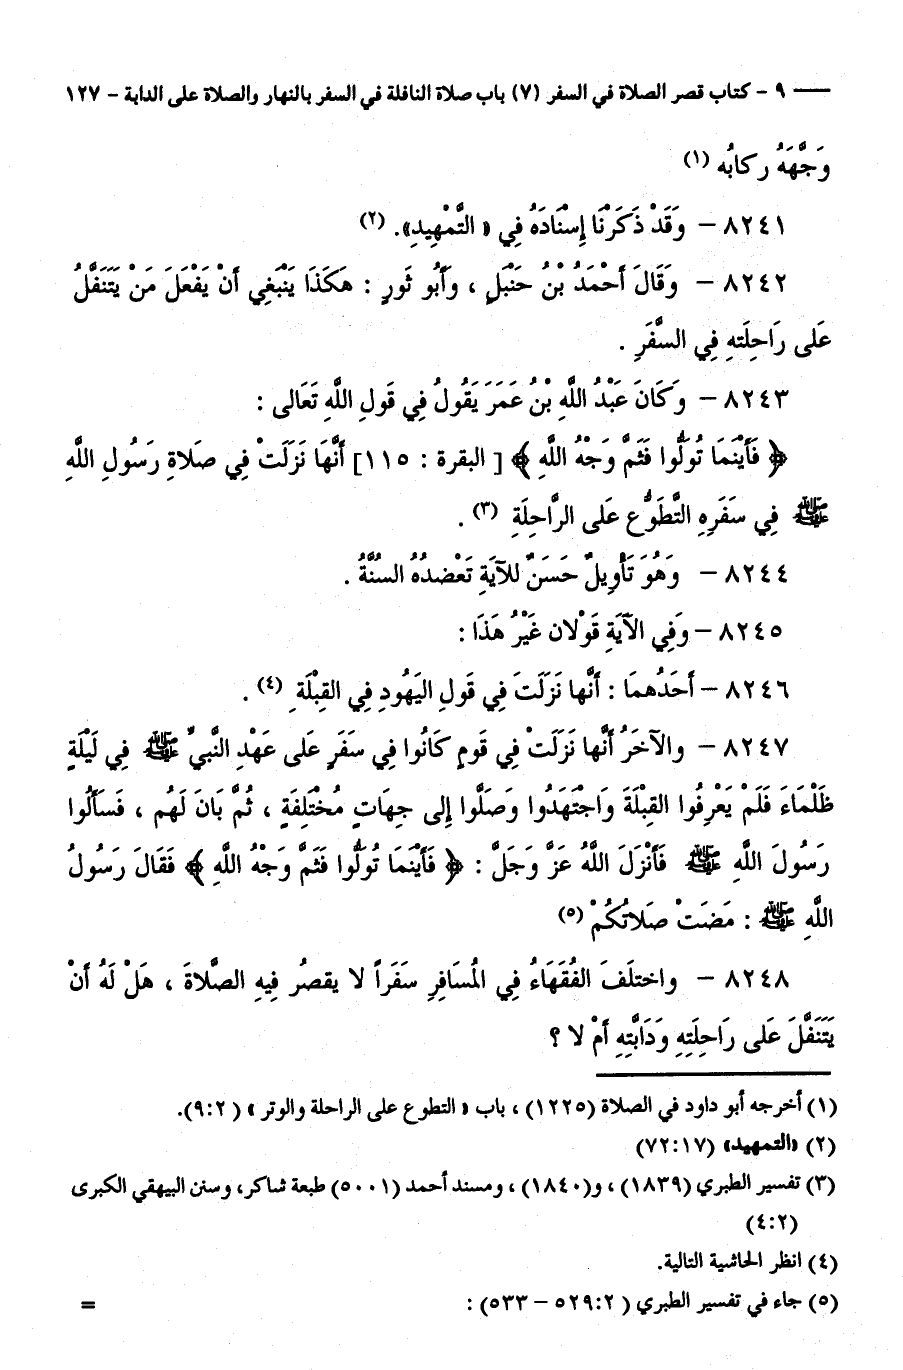 ٩ - كتاب قصر الصلاة في السفر (٧) باب صلاة النافلة في السفر بالنهار والصلاة على الدابة - ١٢٧
وَجَّهَهُ ركابُه (١)
٨٢٤١ - وَقَدْ ذَكَرْنَا إِسْنَادَهُ فِي « التَّمْهِيدِ». (٢)
٨٢٤٢ - وَقَالَ أَحْمَدُ بْنُ حَنْبَلٍ ، وَأَبُو ثَورٍ : هَكَذَا يَنْبَغِي أَنْ يَفْعَلَ مَنْ يَتَنَفَّلُ
عَلى رَاحِلَتهِ فِي السَّفَرِ .
٨٢٤٣ - وَكَانَ عَبْدُ اللَّهِ بْنُ عَمَرَ يَقُولُ فِي قَولِ اللَّهِ تَعَالى :
﴿ فَأَيْنَمَا تُوَلُّوا فَثَمَّ وَجْهُ اللَّهِ ﴾ [ البقرة : ١١٥] أَنَّها نَزَلَتْ فِي صَلاةِ رَسُولِ اللَّهِ
ﷺ فِي سَفَرِهِ التَّطَوُّعِ عَلى الرَّاحِلَةِ (٣) .
٨٢٤٤ - وَهُوَ تَأْوِيلٌ حَسَنٌ للآيَةِ تَعْضدُهُ السُنَّةُ .
٨٢٤٥ - وَفِي الآيَةِ قَوْلان غَيْرُ هَذَا :
٨٢٤٦ - أَحَدُهمَا : أَنَّها نَزَلَتَ فِي قَولِ اليَهُودِ فِي القِبْلَةِ (٤) .
٨٢٤٧ - والآخَرُ أَنَّها نَزَلَتْ فِي قَومٍ كَانُوا فِي سَفَرٍ عَلى عَهْدِ النَّبيِّ ﷺ فِي لَيْلَةٍ
ظَلْمَاءَ فَلَمْ يَعْرِفُوا القِبْلَةَ وَاجْتَهَدُوا وَصَلَّوا إِلى جِهَاتٍ مُخْتَلِفَةٍ ، ثُمَّ بَانَ لَهُم ، فَسَأَلُوا
رَسُولَ اللَّهِ ﷺ فَأَنْزَلَ اللَّهُ عَزَّ وَجَلَّ : ﴿ فَأَيْنَمَا تُوَلُّوا فَثَمَّ وَجْهُ اللَّهِ ﴾ فَقَالَ رَسُولُ
اللَّهِ ﷺ : مَضَتْ صَلاتُكُمْ (٥)
٨٢٤٨ - واختلَفَ الفُقَهَاءُ فِي المُسَافِرِ سَفَرَاً لا يقصُر فِيهِ الصَّلاةَ ، هَلْ لَهُ أَنْ
يَتَنَفَّلَ عَلى رَاحِلَتِهِ وَدَابَّتِهِ أَمْ لا ؟
(١) أخرجه أبو داود في الصلاة (١٢٢٥) ، باب « التطوع على الراحلة والوتر » (٩:٢).
(٢) «التمهيد» (٧٢:١٧)
(٣) تفسير الطبري (١٨٣٩) ، و(١٨٤٠) ، ومسند أحمد (٥٠٠١) طبعة شاكر، وسنن البيهقي الكبرى
(٤:٢)
(٤) انظر الحاشية التالية.
(٥) جاء في تفسير الطبري ( ٥٢٩:٢ - ٥٣٣) : =